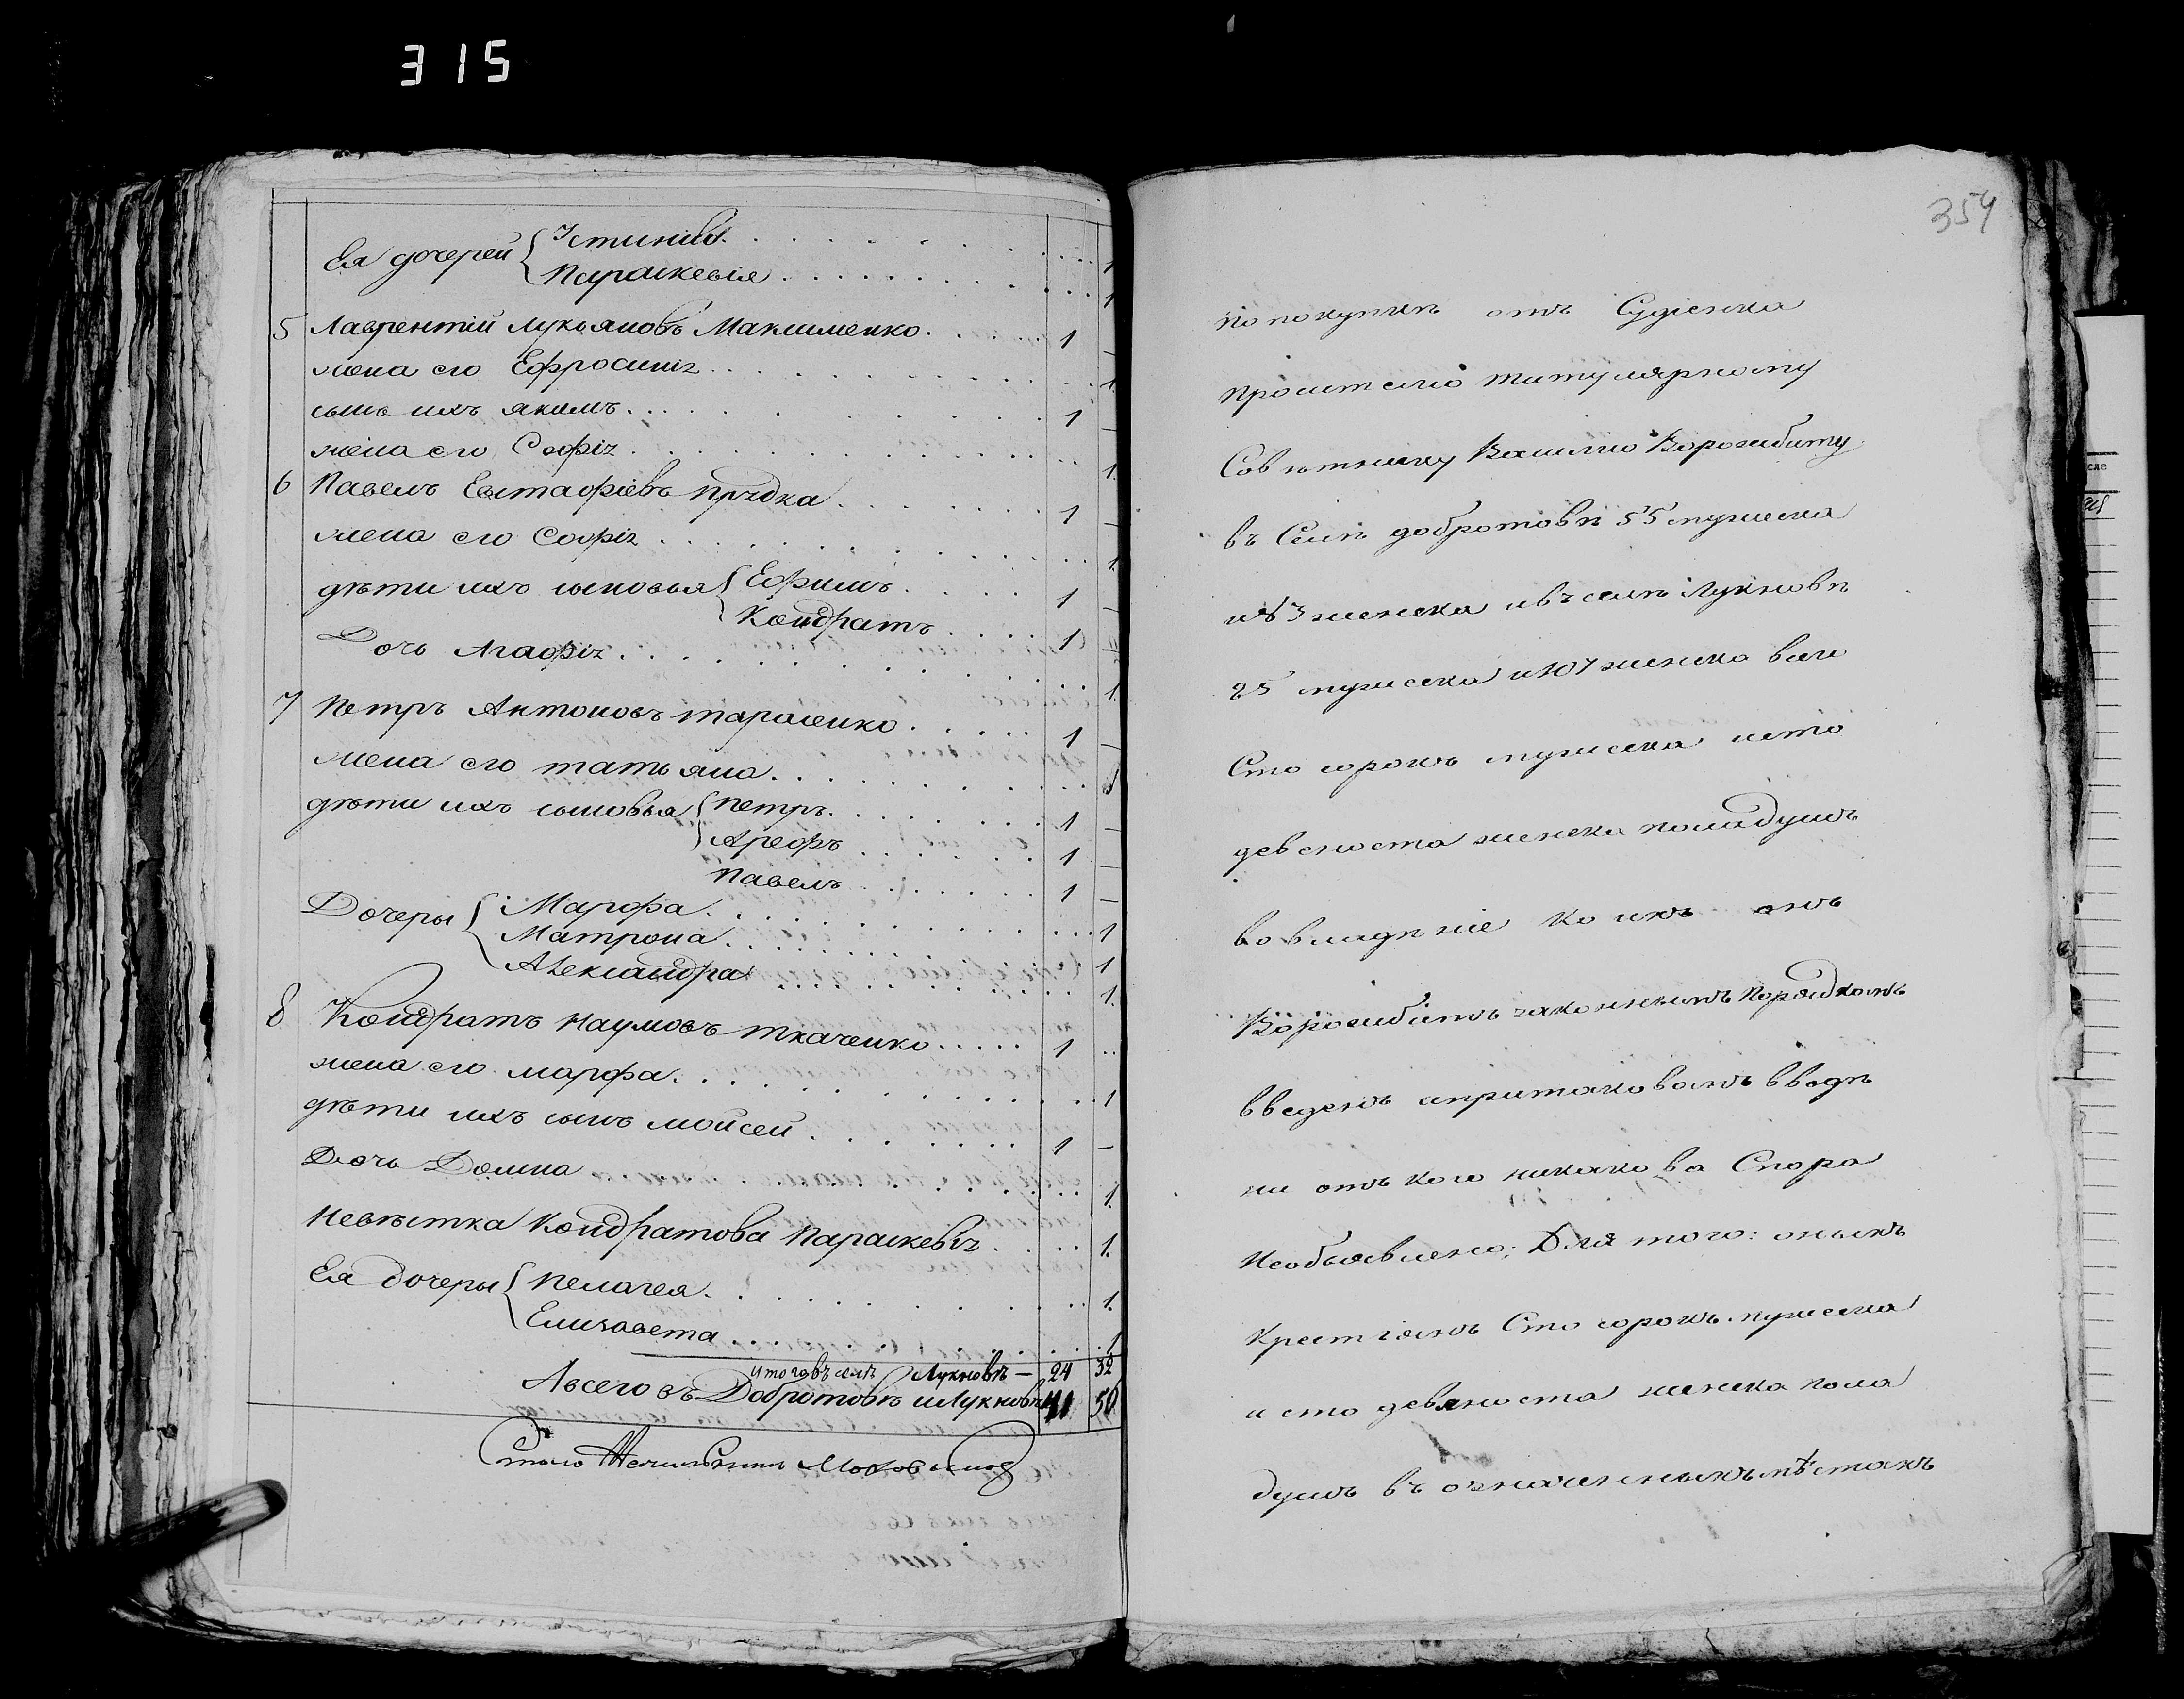 315
Ея дочерей { Устиния . . . 1
Параскевия . . . 1
5 Лаврентий Лукьяновъ Максименко . . . 1 —
жена его Ефросиния . . . 1
сынъ ихъ якимъ . . . 1 —
жена его Софія . . . 1
6 Павелъ Евстафіевъ прядка . . . 1 —
жена его Софія . . . 1
дѣти ихъ сыновья { Ефимъ . . . 1 —
Кондратъ . . . 1
Дочь Агафія . . . 1
7 Петръ Антоновъ тарасенко . . . 1 —
жена его татьяна . . . 1
дѣти ихъ сыновья { петръ . . . 1 —
Арефъ . . . 1 —
павелъ . . . 1 —
Дочеры { Марфа . . . 1
Матрона . . . 1
Александра . . . 1
8 Кондратъ Наумовъ ткаченко . . . 1
жена его марфа . . . 1
дѣти ихъ сынъ мойсей . . . 1 —
Дочь Домна . . . 1
Невѣстка Кондратова Параскевія . . . 1
Ея дочеры { пелагея . . . 1
Елизавета . . . 1
Итого въ селѣ Лукновѣ — 24 32
Авсего въ Добротовѣ иЛукновѣ 41 50
354
по покупкѣ отъ Судіенка
просителю титулярному
Совѣтнику Василию Ворожбиту
въ Селѣ добротовѣ 55 мужеска
и83 женска ивъ селѣ Лукновѣ
85 мужеска и107 женска всего
Сто сорокъ мужеска исто
девеноста женска пола душъ
во владѣніе коихъ онъ
Ворожбитъ законнымъ порядкомъ
введенъ апритаковомъ вводѣ
ни отъ кого никакова Спора
Необъявлено; Для того: оныхъ
крестіянъ Сто сорокъ мужеска
и сто девяноста женска пола
душъ въ означенныхъ мѣстахъ